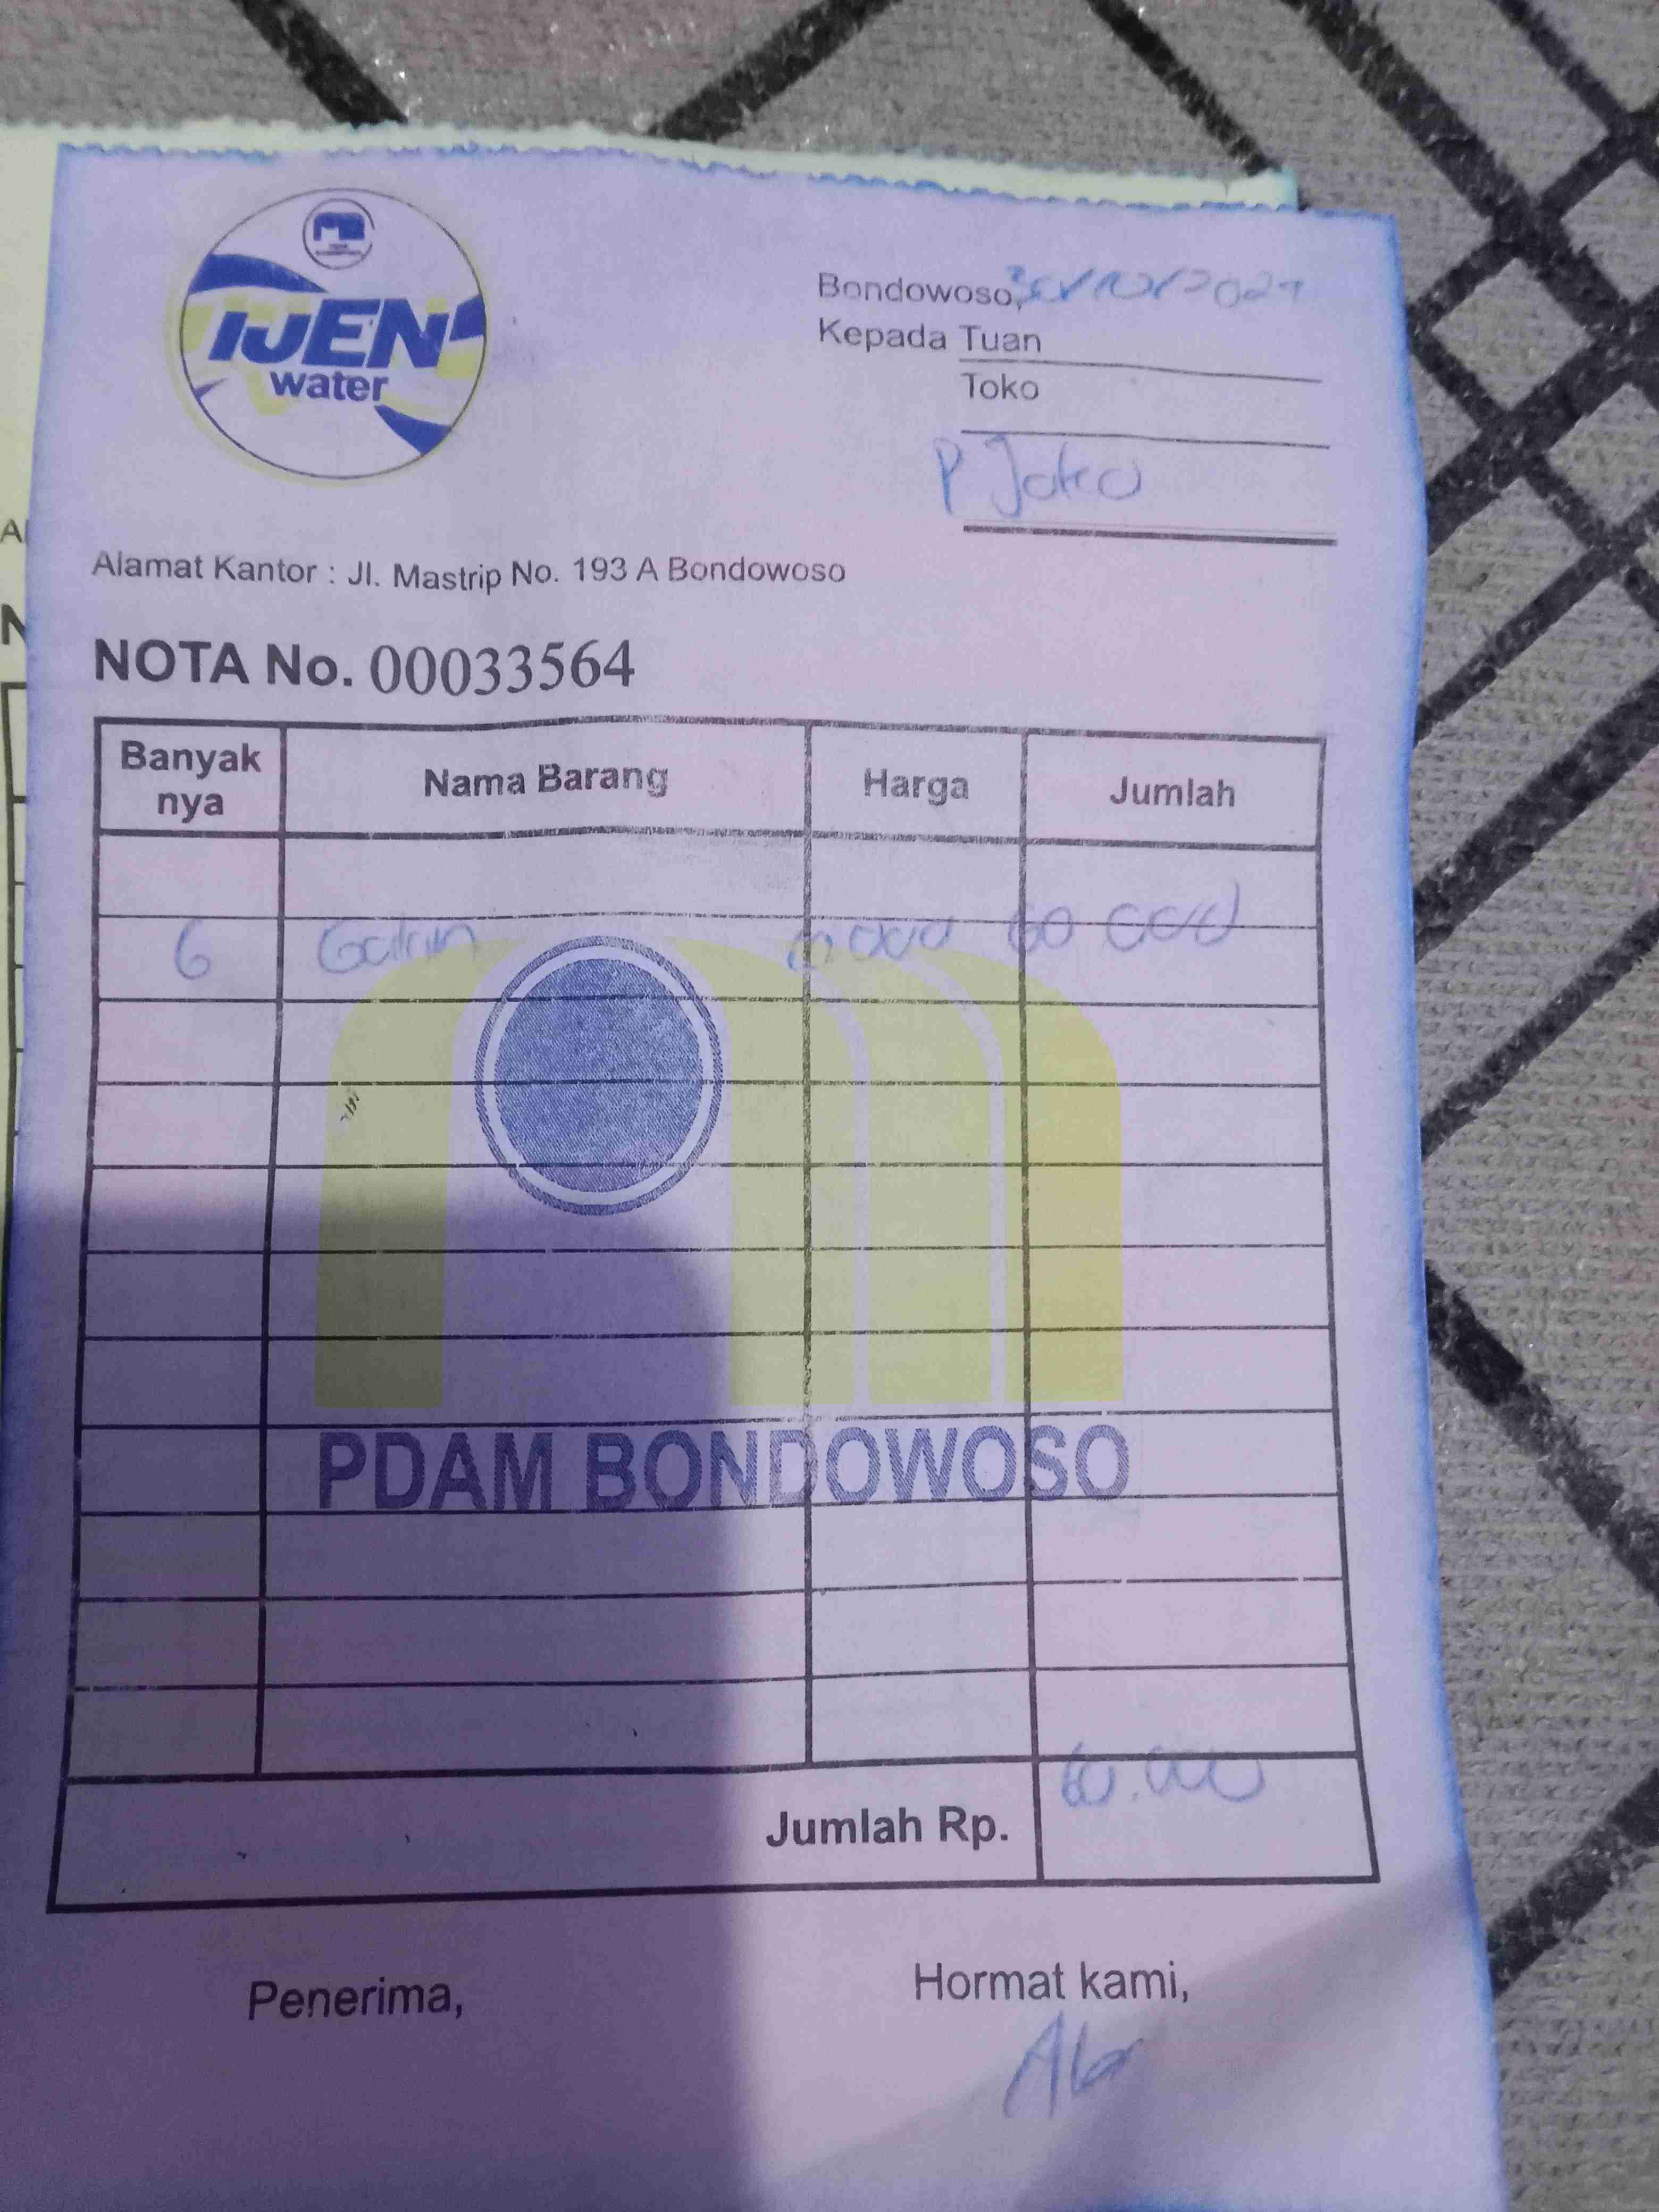 IJEN
water
Bondowoso, 30/10/2024
Kepada Tuan
Toko
P Joko
Alamat Kantor : Jl. Mastrip No. 193 A Bondowoso
NOTA No. 00033564
Banyak nya Nama Barang Harga Jumlah
6 Galon 10 000 60 000
PDAM BONDOWOSO
Jumlah Rp. 60.000
Penerima, Hormat kami,